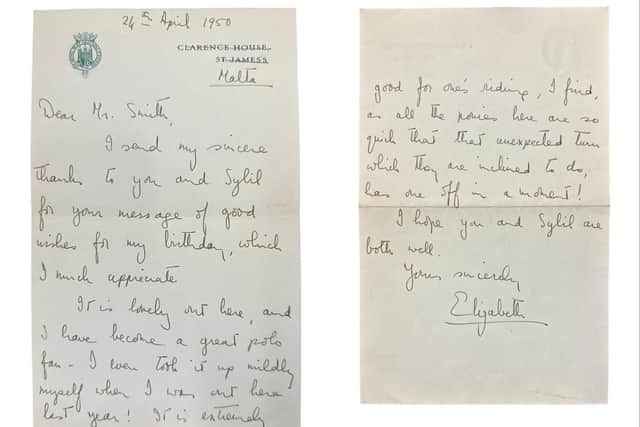 24th April 1950
CLARENCE HOUSE.
ST. JAMES'S
Malta
Dear Mr. Smith,
I send my sincere
thanks to you and Sybil
for your message of good
wishes for my birthday, which
I much appreciate
It is lovely out here, and
I have become a great polo
fan - I even took it up mildly
myself when I was out here
last year! It is extremely
good for one's riding, I find,
as all the ponies here are so
quick that that unexpected turn
which they are inclined to do,
has one off in a moment!
I hope you and Sybil are
both well.
Yours sincerely
Elizabeth